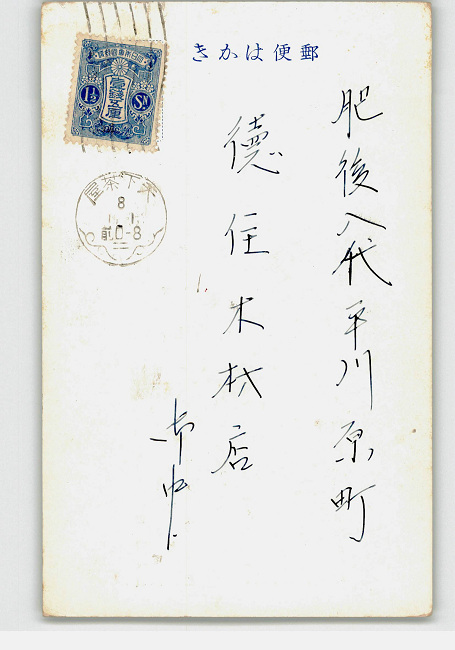 郵便はかき
肥後八代平川原町
德住木材店
御中
大日本帝國郵便
壹錢五厘
1½ Sn
天下茶屋
8
前0-8